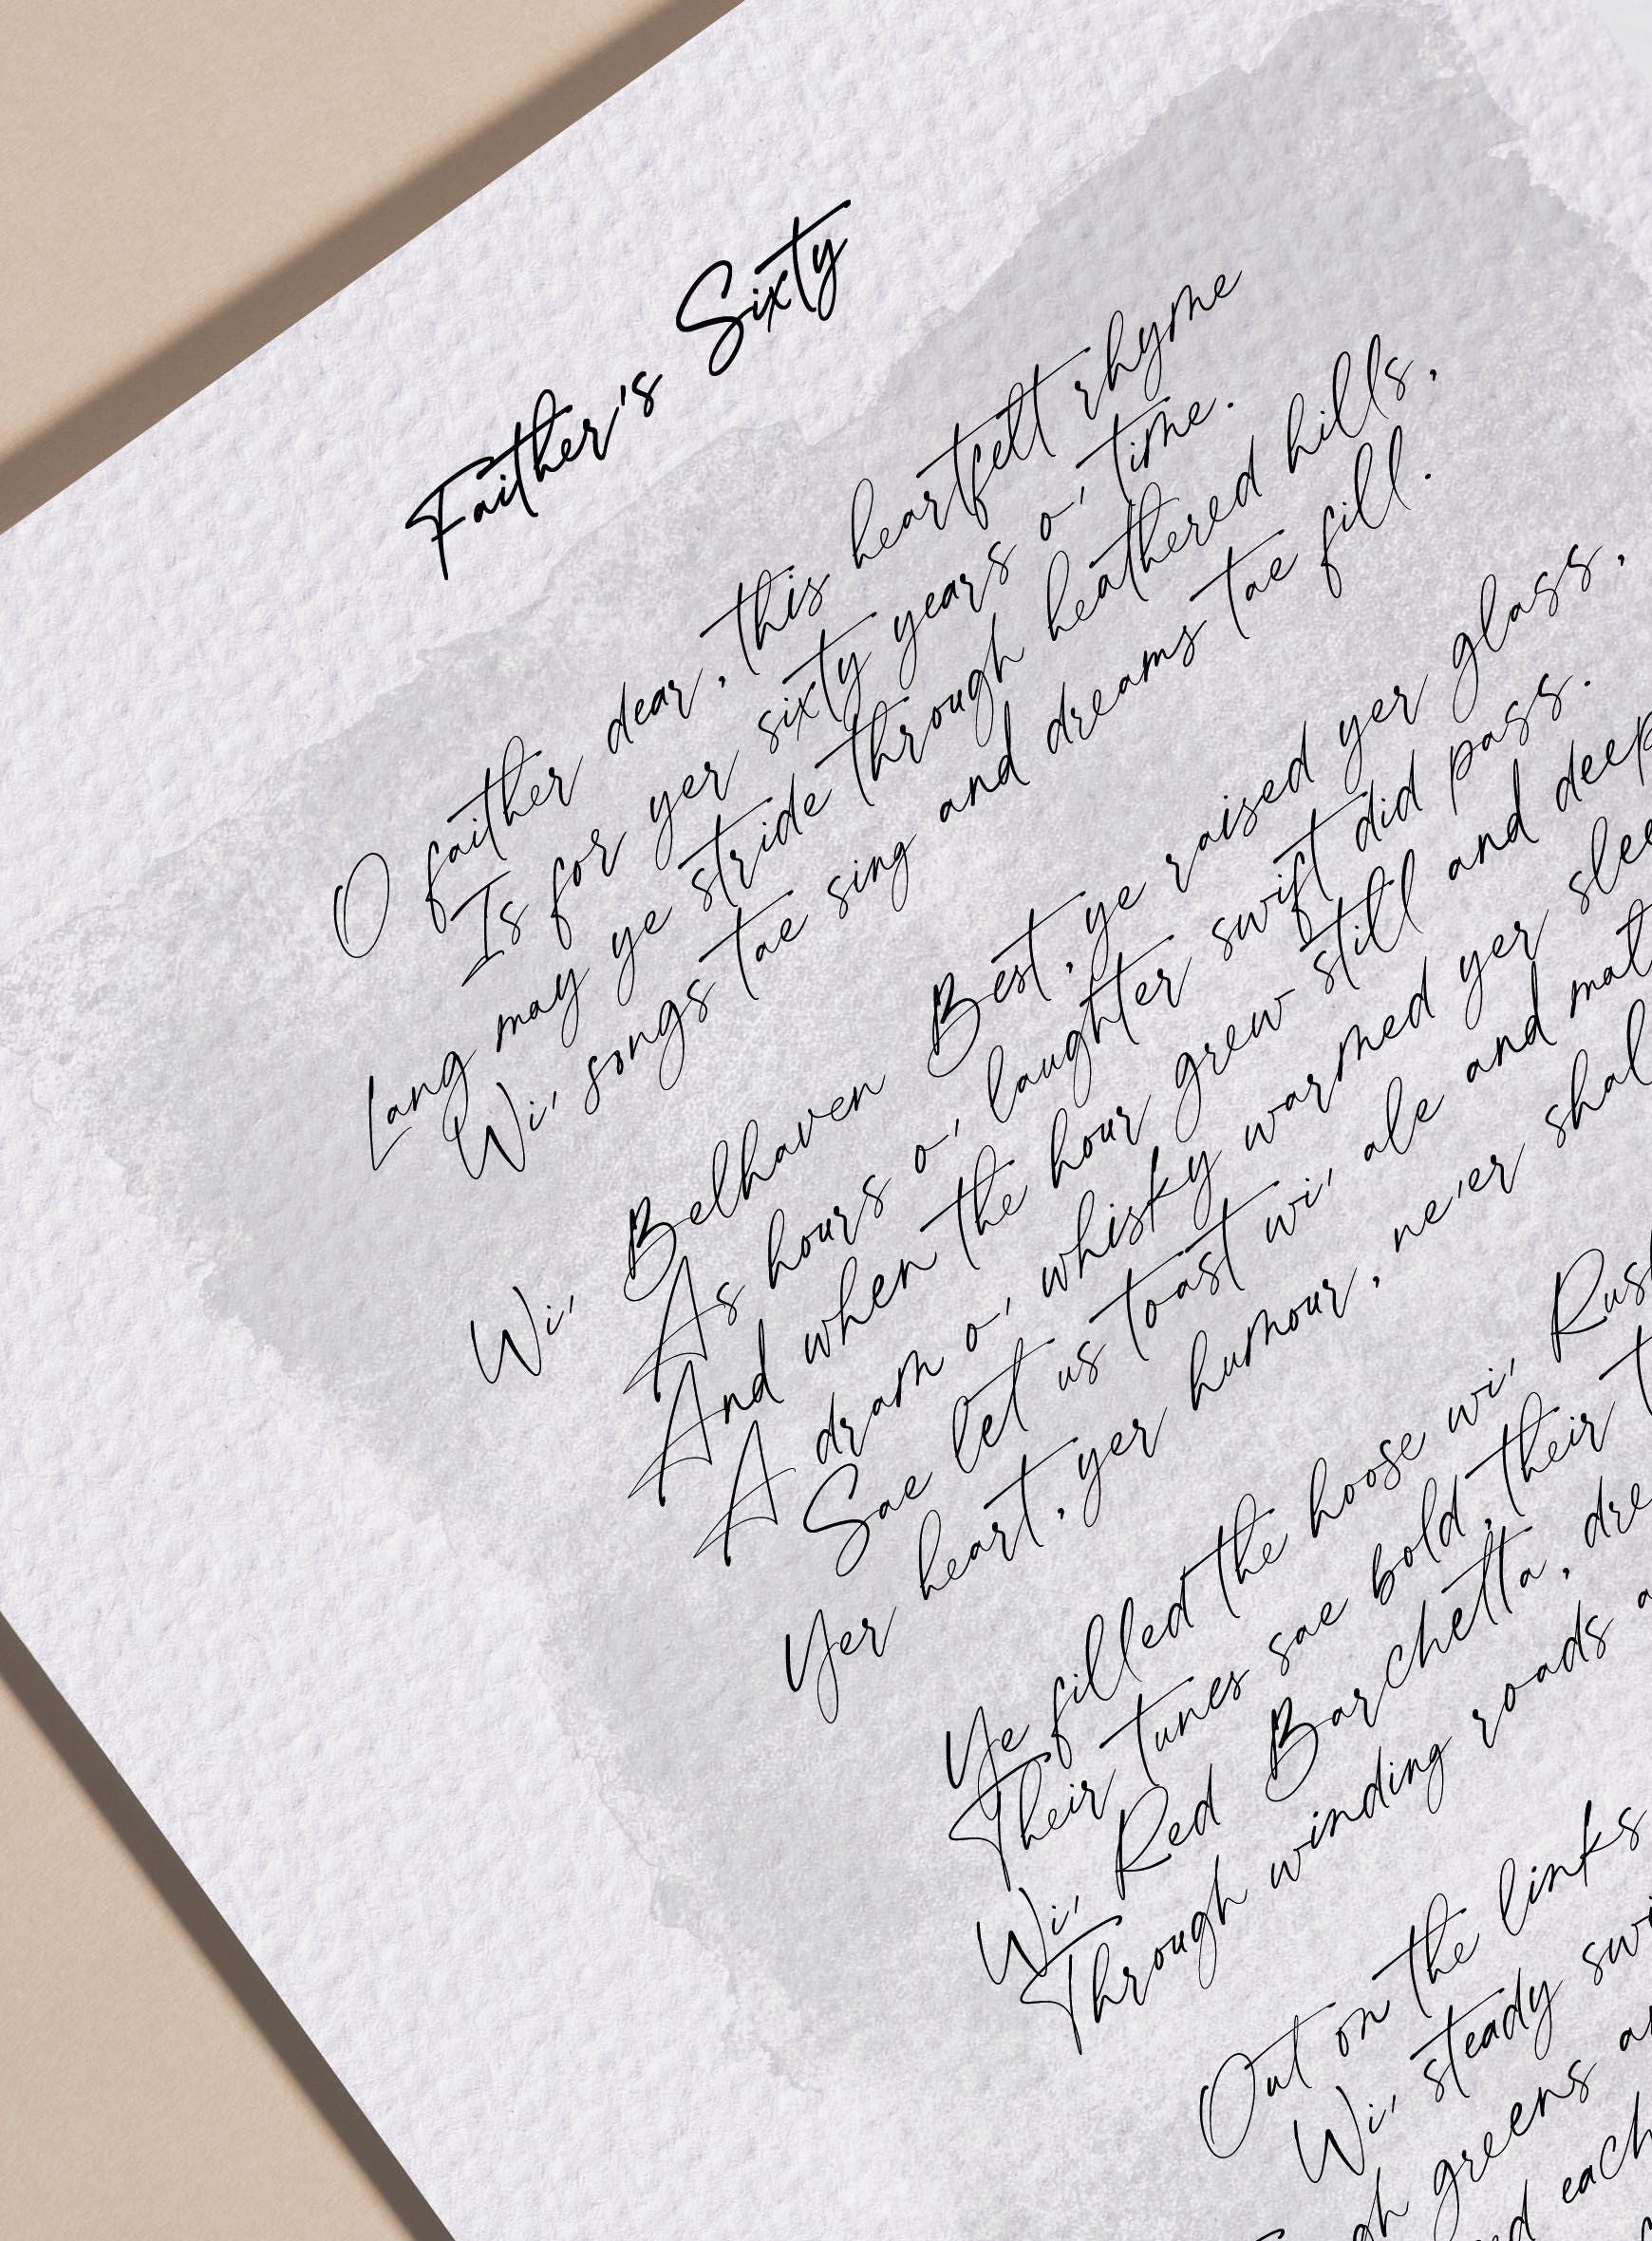 Faither's Sixty
O faither dear, this heartfelt rhyme
Is for yer sixty years o' time.
Lang may ye stride through heathered hills,
Wi' songs tae sing and dreams tae fill.
Wi' Belhaven Best, ye raised yer glass,
As hours o' laughter swift did pass.
And when the hour grew still and deep
A dram o' whisky warmed yer slee
Sae let us toast wi' ale and mat
Yer heart, yer humour, ne'er shal
Ye filled the hoose wi' Rus
Their tunes sae bold, their t
Wi' Red Barchetta, dre
Through winding roads a
Out on the links
Wi' steady swi
gh greens a
ed each